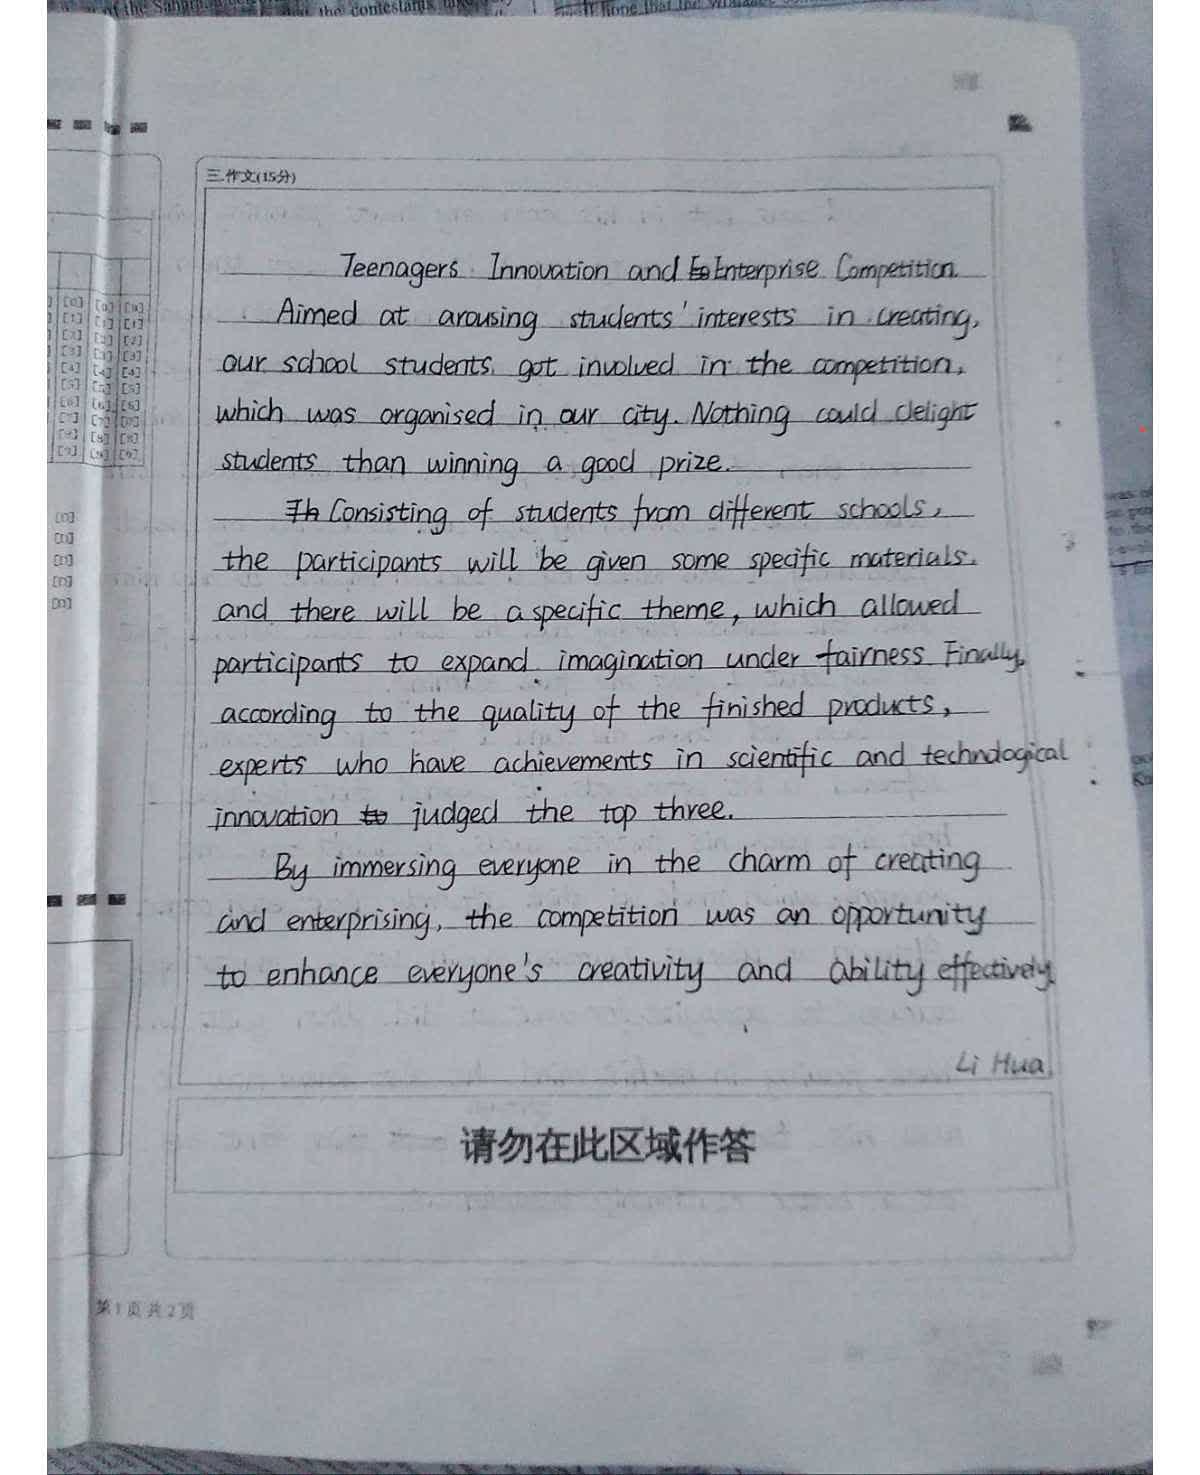 of the Sahara
the contestants
hope that the
三.作文(15分)
Teenagers Innovation and Enterprise Competition
Aimed at arousing students' interests in creating,
our school students got involved in the competition,
which was organised in our city. Nothing could delight
students than winning a good prize.
Th Consisting of students from different schools,
the participants will be given some specific materials.
and there will be a specific theme, which allowed
participants to expand imagination under fairness Finally,
according to the quality of the finished products,
experts who have achievements in scientific and technological
innovation to judged the top three.
By immersing everyone in the charm of creating
and enterprising, the competition was an opportunity
to enhance everyone's creativity and ability effectively.
Li Hua
请勿在此区域作答
第1页 共2页